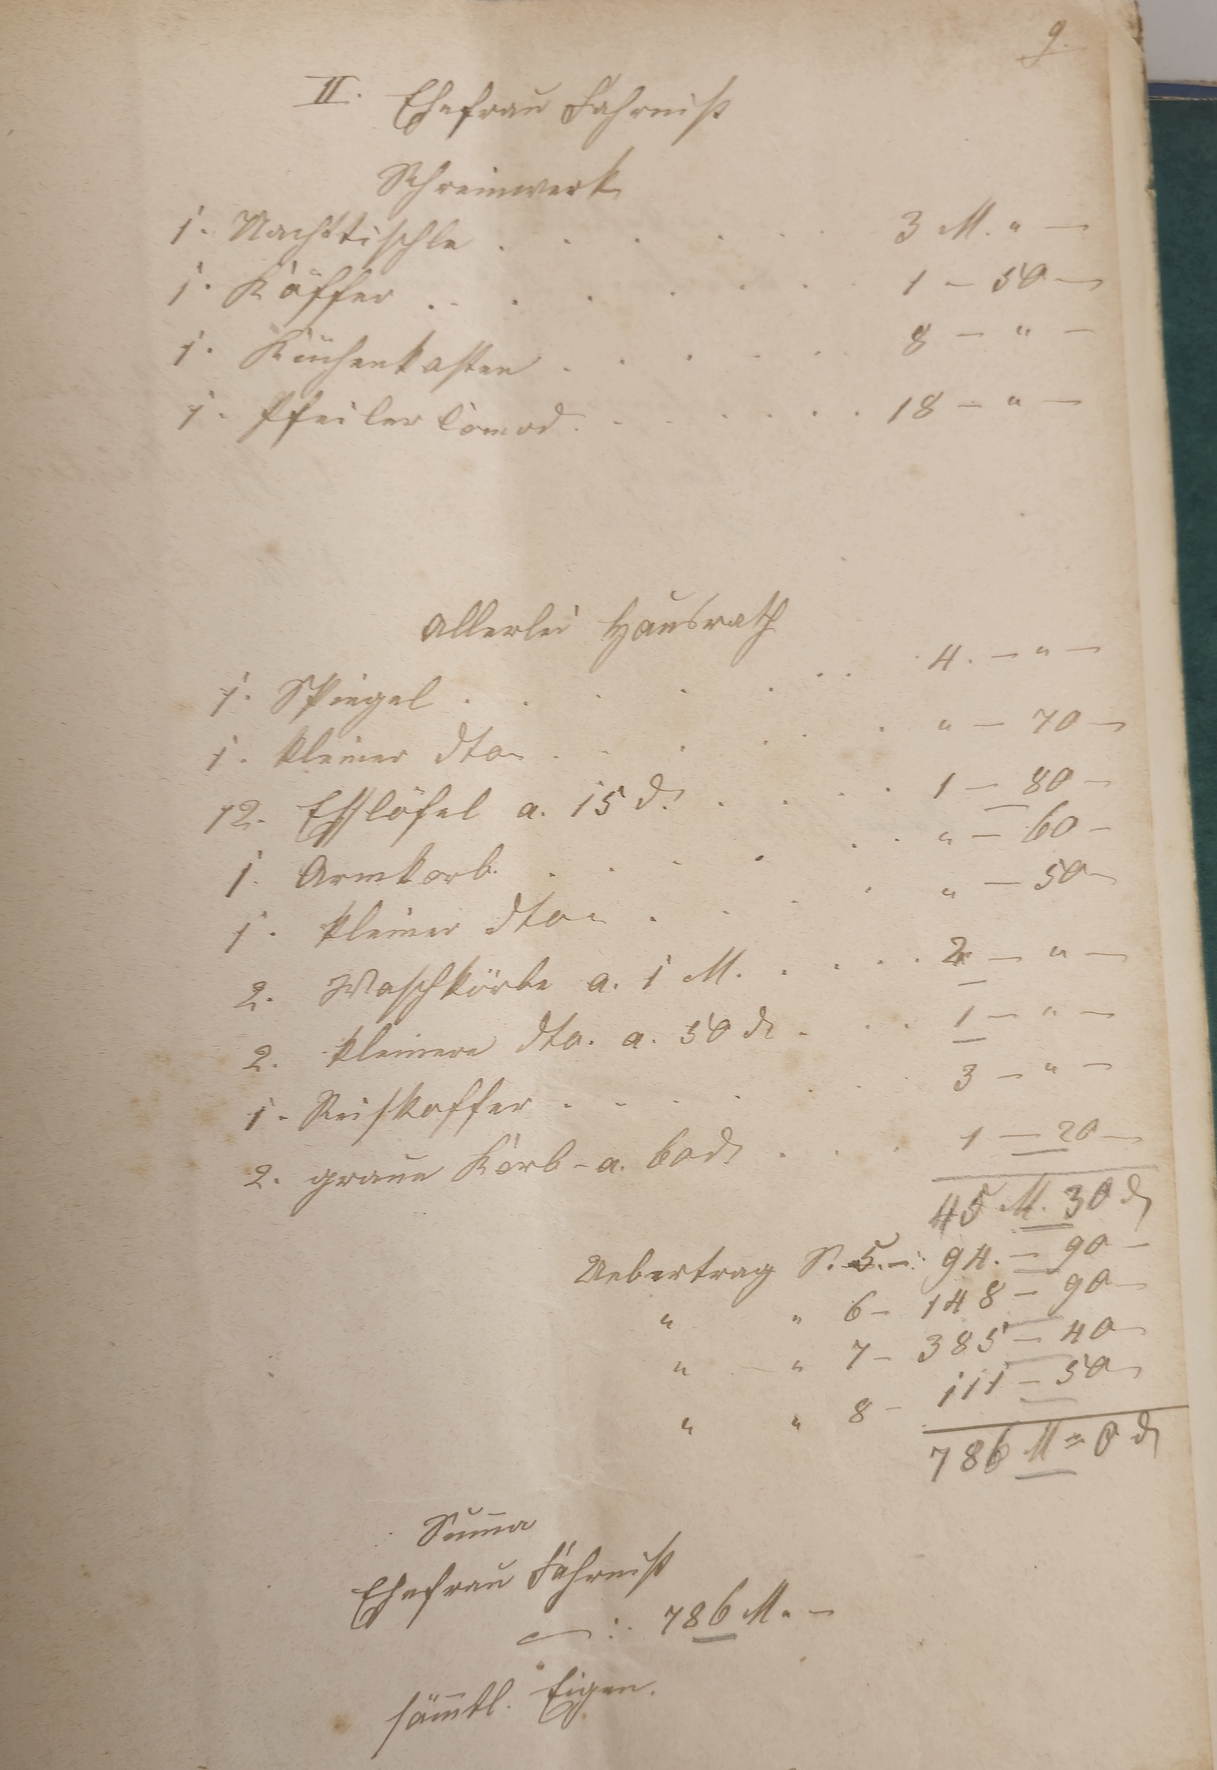 9.
II. Ehefrau Fahrniß
Schreinwerk
1. Nachttischle . . . . . . 3 M. " —
1. Koffer . . . . . . . 1 — 50 —
1. Küchenkasten . . . . . 8 — " —
1. Pfeilercomod . . . . . . 18 — " —
Allerlei Hausrath
1. Spiegel . . . . . . . 4. — " —
1. kleiner dto . . . . . . " — 70 —
12. Esslöfel a. 15 ₰. . . . . 1 — 80 —
1. Armkorb . . . . . . " — 60 —
1. kleiner dto . . . . " — 50 —
2. Waschkörbe a. 1 M. . . . . . 2 — " —
2. kleinere dto. a. 50 ₰ . . . . 1 — " —
1. Reiskoffer . . . . . . 3 — " —
2. graue Körb - a. 60 ₰ . . . 1 — 20 —
45 M. 30 ₰
Uebertrag S. 5. —: 94. — 90 —
" " 6 — 148 — 90 —
" " 7 — 385 — 40 —
" " 8 — 111 — 50 —
786 M = 0 ₰
Summa
Ehefrau Fahrniß
—:. 786 M. —
sämmtl. Eigen.